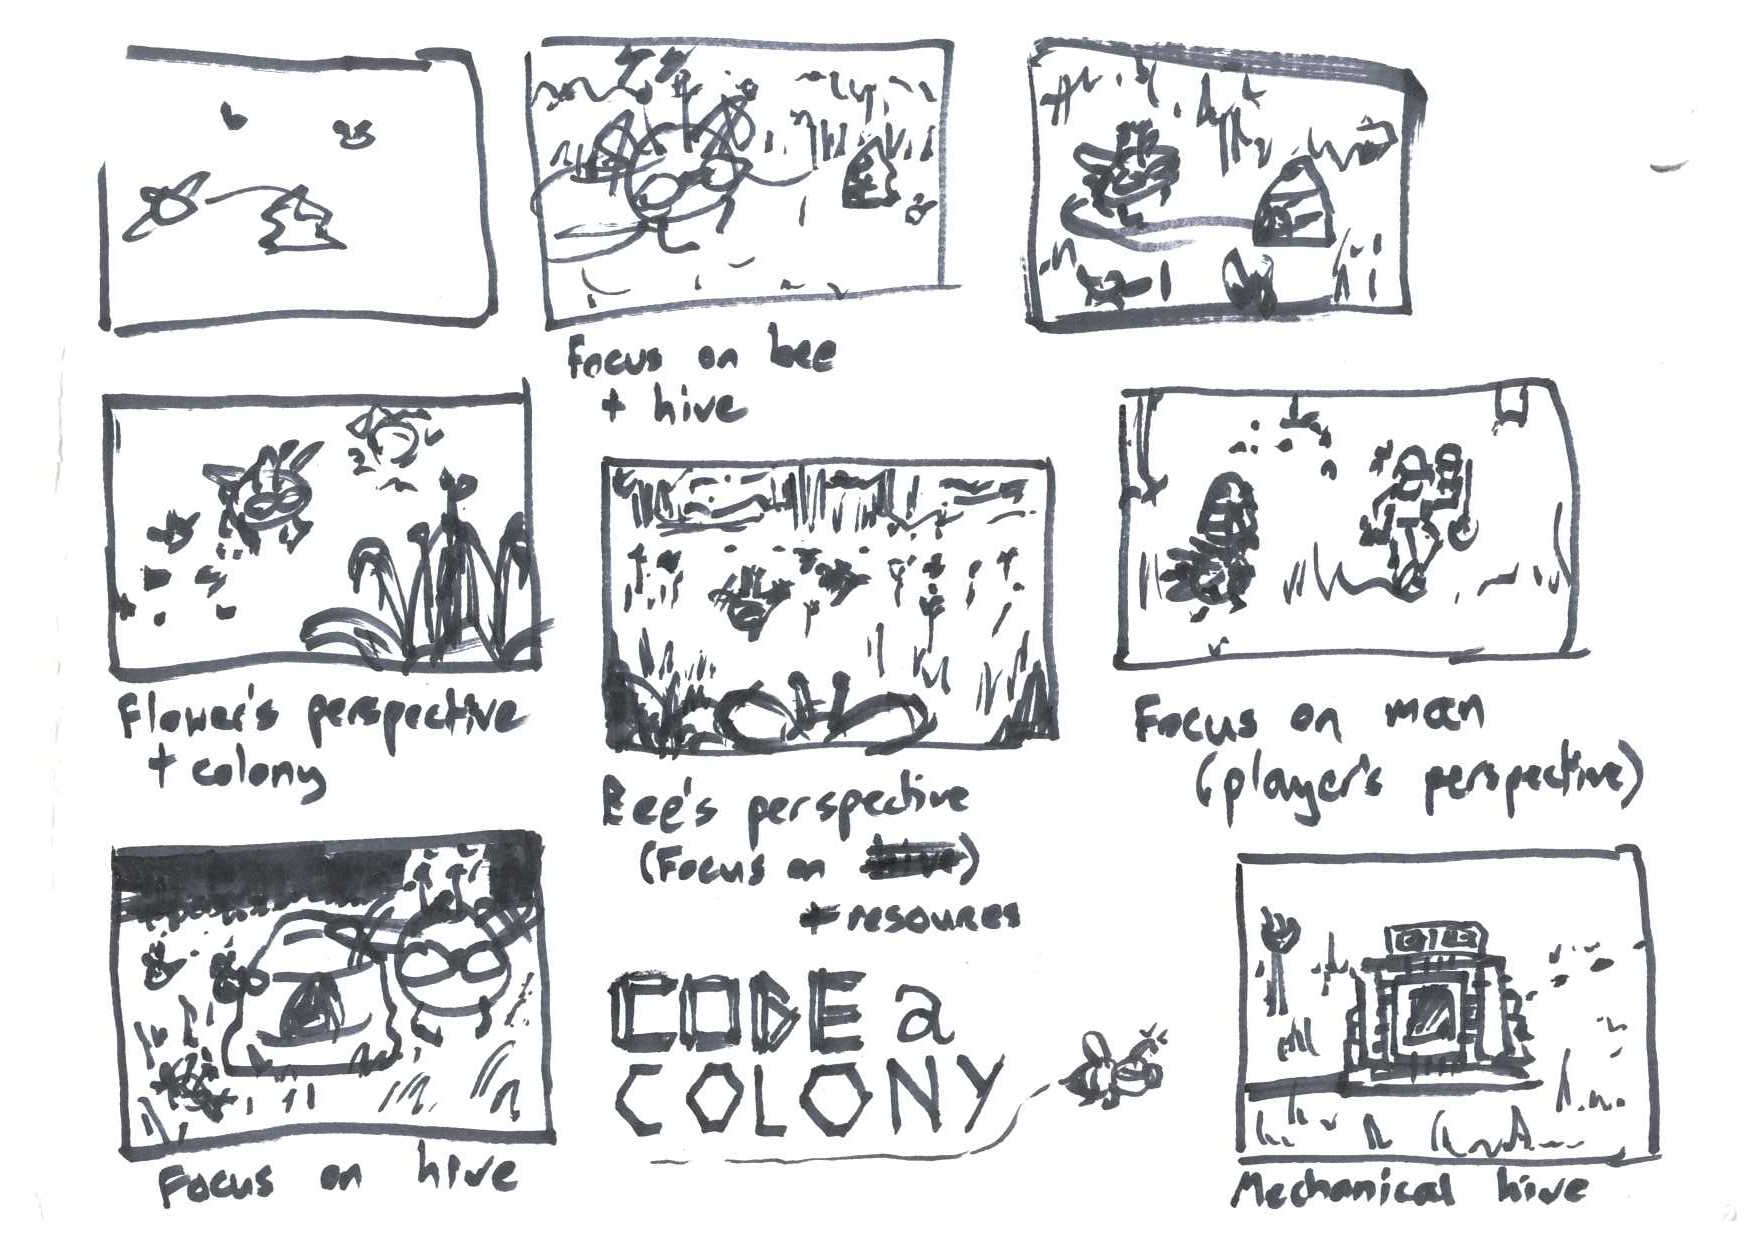 Focus on bee
+ hive
Flower's perspective
+ colony
Bee's perspective
(Focus on hive)
+ resources
Focus on man
(player's perspective)
Focus on hive
CODE a
COLONY
Mechanical hive